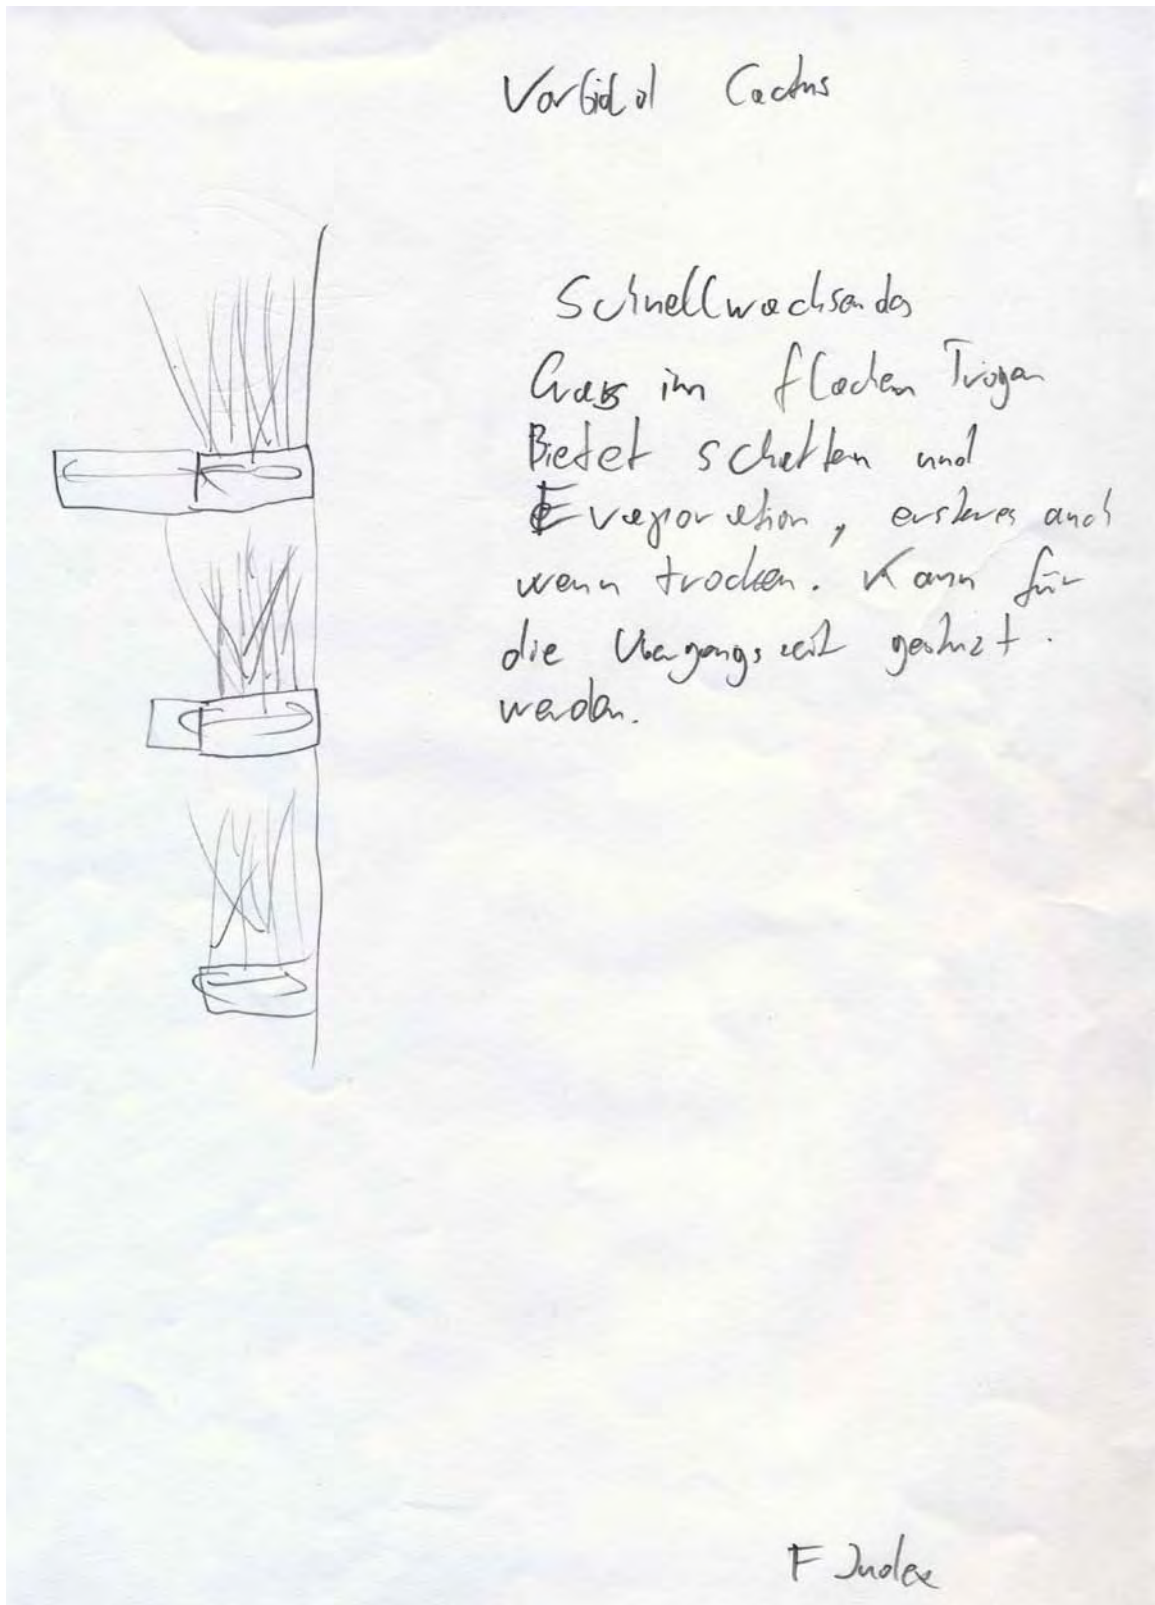 Vorbild Cactus
Schnellwachsendes
Gras im flachen Trögen
Bietet schatten und
Evaporation, ersteres auch
wenn trocken. Kann für
die Übergangszeit gestutzt
werden.
F Judex